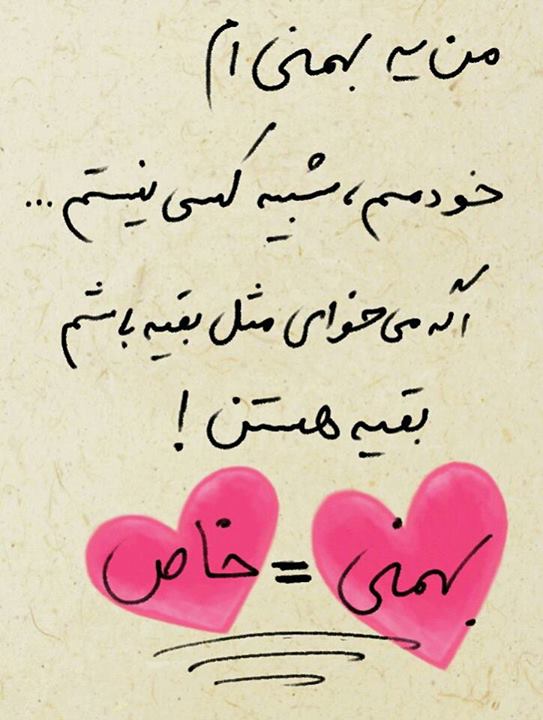 من یه بهمنی ام
خودمم، شبیه کسی نیستم ...
اگه می خوای مثل بقیه باشم
بقیه هستن !
بهمنی = خاص